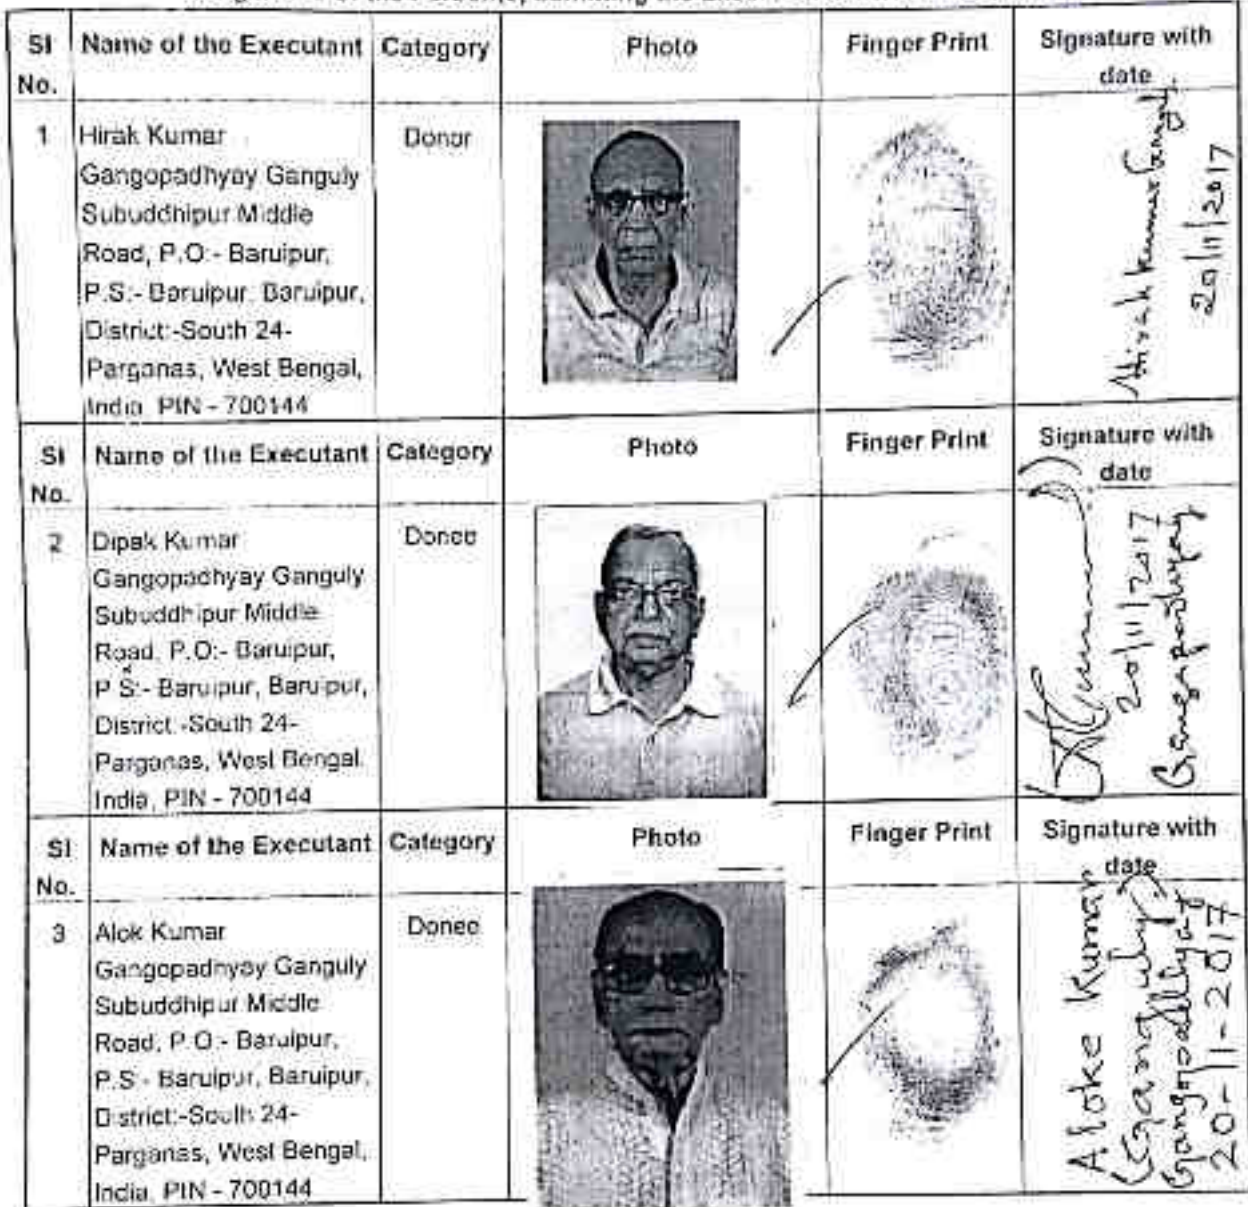 the Person(s) admitting the
Sl No. Name of the Executant Category Photo Finger Print Signature with date
1 Hirak Kumar Donor
Gangopadhyay Ganguly
Subuddhipur Middle
Road, P.O:- Baruipur,
P.S:- Baruipur, Baruipur,
District:-South 24-
Parganas, West Bengal,
India, PIN - 700144
Hirak Kumar
20/11/2017
Sl No. Name of the Executant Category Photo Finger Print Signature with date
2 Dipak Kumar Donee
Gangopadhyay Ganguly
Subuddhipur Middle
Road, P.O:- Baruipur,
P.S:- Baruipur, Baruipur,
District:-South 24-
Parganas, West Bengal,
India, PIN - 700144
20/11/2017
Gangopadhyay
Sl No. Name of the Executant Category Photo Finger Print Signature with date
3 Alok Kumar Donee
Gangopadhyay Ganguly
Subuddhipur Middle
Road, P.O:- Baruipur,
P.S:- Baruipur, Baruipur,
District:-South 24-
Parganas, West Bengal,
India, PIN - 700144
Aloke Kumar
(Ganguly)
Gangopadhyay
20-11-2017